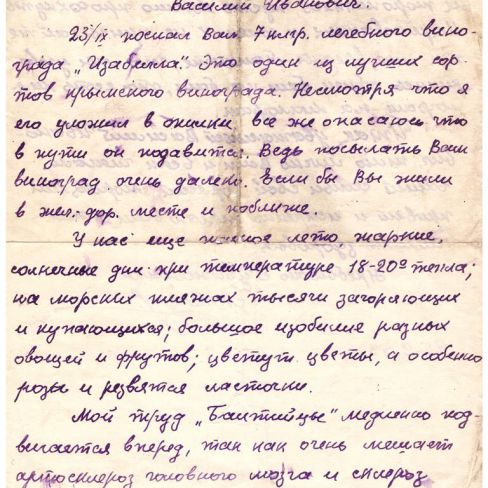 Василий Иванович!
23/IX послал Вам 7 клгр. лечебного вино-
града „Изабелла". Это один из лучших сор-
тов крымского винограда. Несмотря что я
его уложил в опилки, все же опасаюсь что
в пути он подавится. Ведь посылать Вам
виноград очень далеко. Если бы Вы жили
в жел.-дор. месте и поближе.
У нас еще полное лето, жаркие,
солнечные дни при температуре 18-20° тепла;
на морских пляжах тысячи загорающих
и купающихся; большое изобилие разных
овощей и фруктов; цветут цветы, а особенно
розы и резвятся ласточки.
Мой труд „Балтийцы" медленно под-
вигается вперед, так как очень мешает
артосклероз головного мозга и склероз